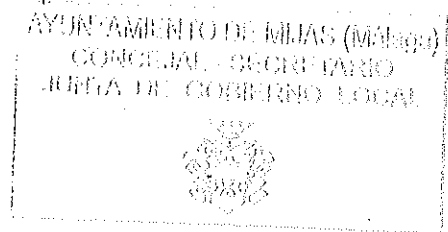 AYUNTAMIENTO DE MIJAS (Málaga)
CONCEJAL - SECRETARIO
JUNTA DE GOBIERNO LOCAL